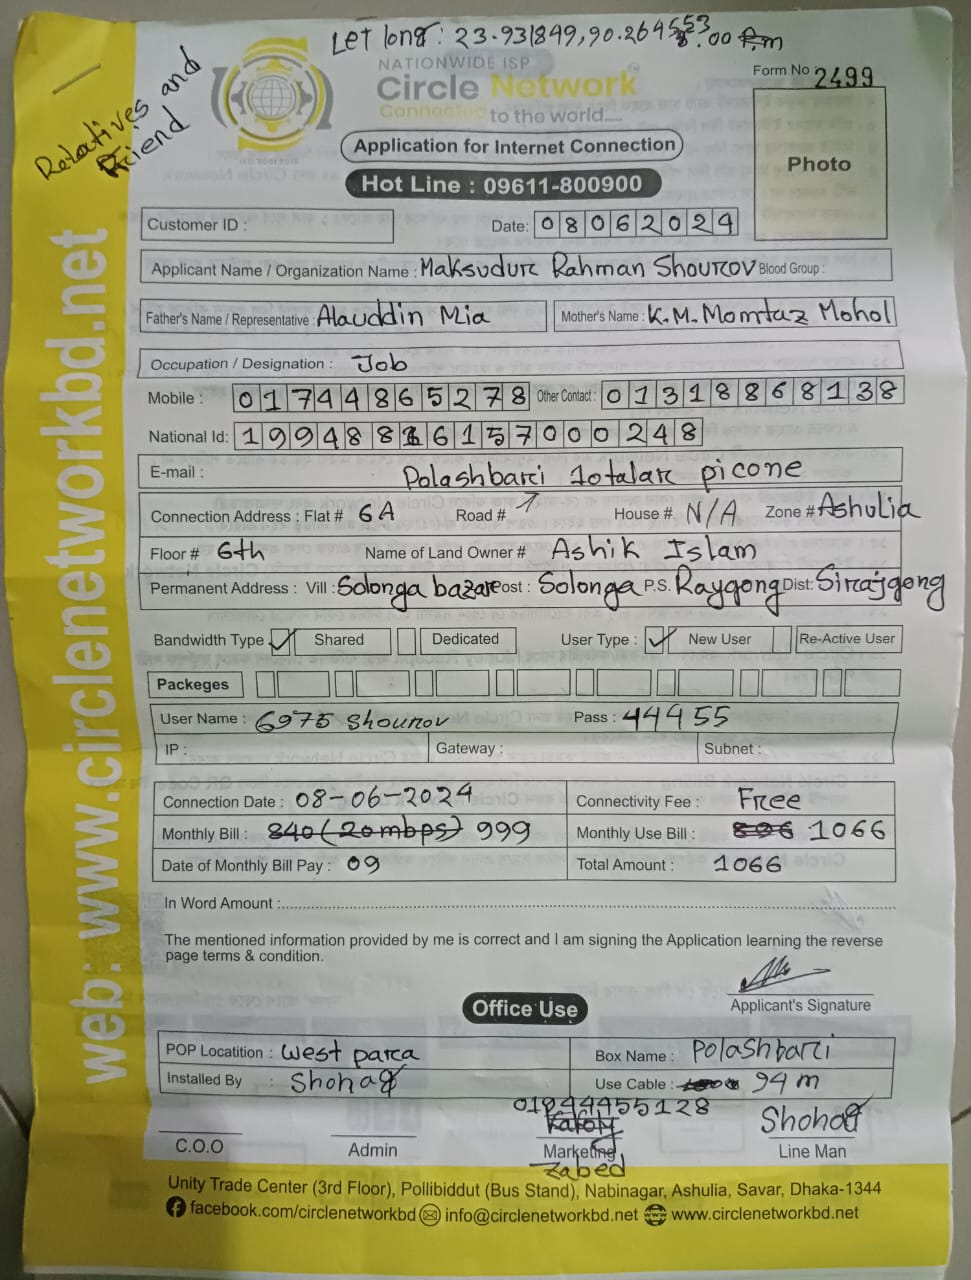 Let long: 23.931849,90.264553
8.00 P.m
Relatives and
Friend
NATIONWIDE ISP
Circle Network
Connected to the world.....
ISO 9001:2015
Form No : 2499
Photo
Application for Internet Connection
Hot Line : 09611-800900
Customer ID :
Date: 08062024
Applicant Name / Organization Name : Maksudur Rahman Shourov Blood Group :
Father's Name / Representative : Alauddin Mia Mother's Name : K.M. Momtaz Mohol
Occupation / Designation : Job
Mobile : 01744865278 Other Contact : 01318868138
National Id: 19948816157000248
E-mail :
Polashbari 10talar picone
Connection Address : Flat # 6A Road # House # N/A Zone # Ashulia
Floor # 6th Name of Land Owner # Ashik Islam
Permanent Address : Vill : Solonga bazar Post : Solonga P.S. Raygong Dist: Sirajgong
Bandwidth Type : ✓ Shared Dedicated User Type : ✓ New User Re-Active User
Packeges
User Name : 6975 Shourov Pass : 44455
IP : Gateway : Subnet :
Connection Date : 08-06-2024 Connectivity Fee : Free
Monthly Bill : 840 (20mbps) 999 Monthly Use Bill : 896 1066
Date of Monthly Bill Pay : 09 Total Amount : 1066
In Word Amount :
The mentioned information provided by me is correct and I am signing the Application learning the reverse
page terms & condition.
Applicant's Signature
Office Use
POP Locatition : West para Box Name : Polashbari
Installed By : Shohag Use Cable : 94 m
01944455128
Shohag
C.O.O Admin Marketing Line Man
Zabed
Unity Trade Center (3rd Floor), Pollibiddut (Bus Stand), Nabinagar, Ashulia, Savar, Dhaka-1344
facebook.com/circlenetworkbd info@circlenetworkbd.net www.circlenetworkbd.net
web: www.circlenetworkbd.net